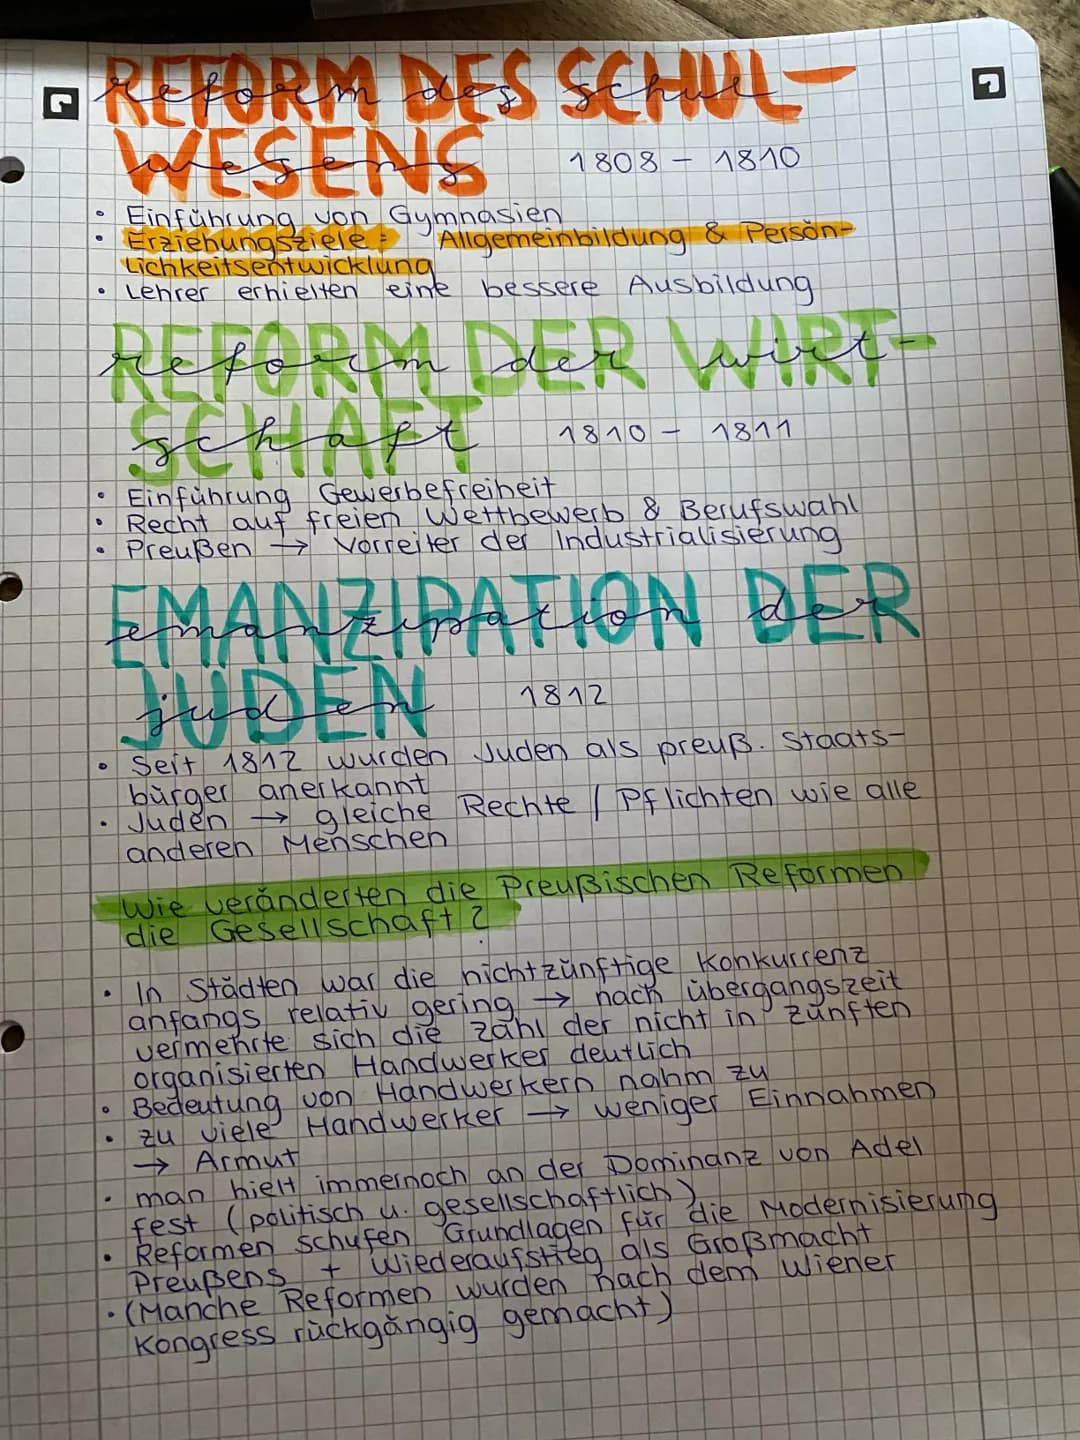 REFORM DES SCHUL-
WESENS 1808 - 1810
• Einführung von Gymnasien
• Erziehungsziele: Allgemeinbildung & Persön-
lichkeitsentwicklung
• Lehrer erhielten eine bessere Ausbildung
REFORM DER WIRT-
SCHAFT 1810 - 1811
• Einführung Gewerbefreiheit
• Recht auf freien Wettbewerb & Berufswahl
• Preußen → Vorreiter der Industrialisierung
EMANZIPATION DER
JUDEN 1812
• Seit 1812 wurden Juden als preuß. Staats-
bürger anerkannt
• Juden → gleiche Rechte / Pflichten wie alle
anderen Menschen
Wie veränderten die Preußischen Reformen
die Gesellschaft?
• In Städten war die nichtzünftige Konkurrenz
anfangs relativ gering → nach übergangszeit
vermehrte sich die Zahl der nicht in Zünften
organisierten Handwerker deutlich
• Bedeutung von Handwerkern nahm zu
• zu viele Handwerker → weniger Einnahmen
→ Armut
• man hielt immernoch an der Dominanz von Adel
fest (politisch u. gesellschaftlich)
• Reformen schufen Grundlagen für die Modernisierung
Preußens + Wiederaufstieg als Großmacht
• (Manche Reformen wurden nach dem Wiener
Kongress rückgängig gemacht)